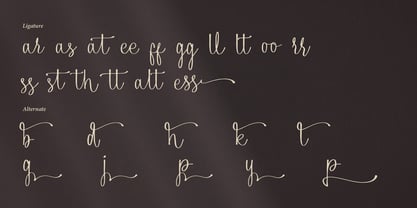 Ligature
ar as at ee ff gg ll tt oo rr
ss st th tt alt ess
Alternate
b d h k t
g j p y p